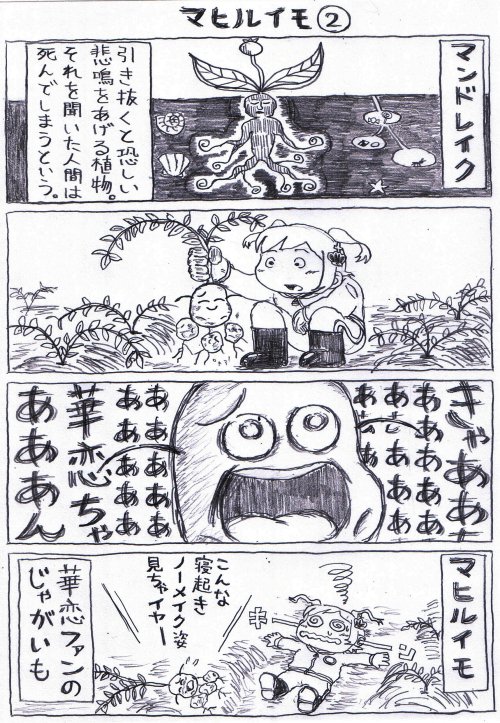 マヒルイモ②
マンドレイク
引き抜くと恐しい
悲鳴をあげる植物。
それを聞いた人間は
死んでしまうという。
きゃああ
あああああ
あああああ
あああああ
あああああ
あああああ
華恋ちゃ
あああん
マヒルイモ
こんな
寝起き
ノーメイク姿
見ちゃイヤー
華恋ファンの
じゃがいも